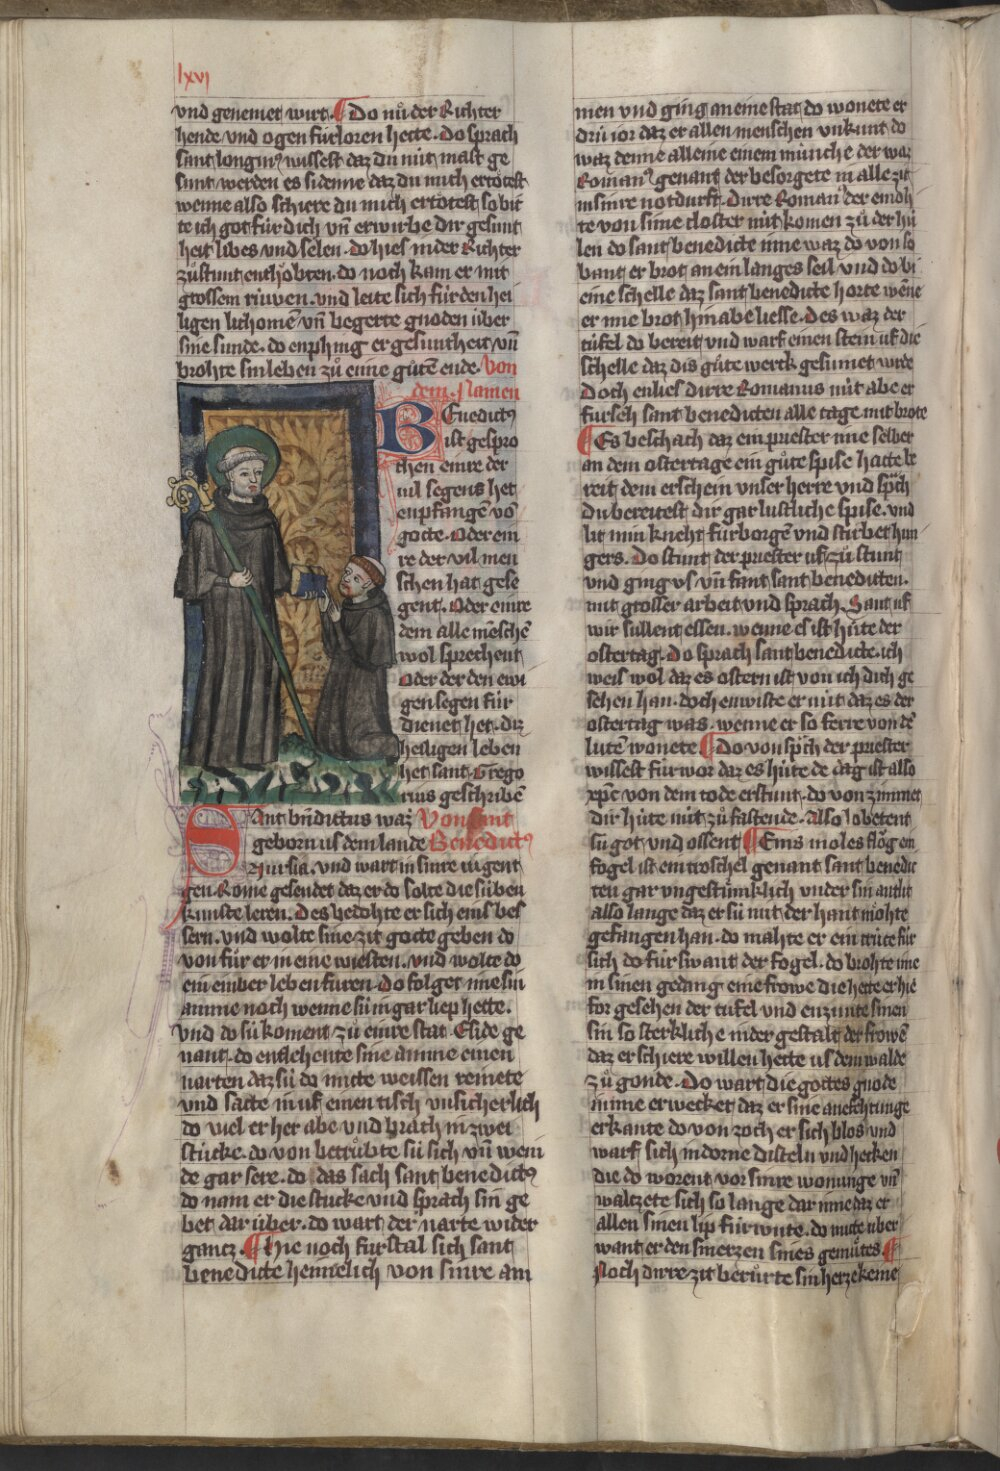 lxvi
vnd geneniet wirt. Do nuͦ der Richter
hende vnd ogen fúrloren hette. Do sprach
sant longinꝰ wissest daz du nút maht ge
sunt werden es si denne daz du mich ertoͤtest
wenne also schiere du mich ertoͤtest so bit
te ich got fúr dich vn̄ erwirbe dir gesunt
heit libes vnd selen. do hies in der Richter
zuͦ stunt enthoͮbten. do noch kam er mit
grossem rúwen. vnd leite sich fúr den hei
ligen lichomē vn̄ begerte gnoden úber
sine sunde. do enphing er gesuntheit vn̄
brohte sin leben zuͦ eime guͦtē ende. Von
dem Namen
Benedictꝰ
ist gespro
chen einre der
vil segens het
enpfangē vō
gotte. Oder ein
re der vil men
schen hat gese
gent. Oder einre
dem alle mēschē
wol sprechent
Oder der den ewi
gen segen fúr
dienet het. diz
heiligen leben
het sant Grego
rius geschribē
Sant bn̄dictus waz Von sant
geborn us dem lande Benedictꝰ
Nursia. vnd wart in sinre iugent
gen Rome gesendet daz er do solte die súben
kúnste leren. Des bedohte er sich eins bes
sern. vnd wolte sine zit gotte geben do
von fúr er in eine wiesten. vnd wolte do
ein ember leben fúren. Do folget ime sin
amme noch wenne sú in gar liep hette.
vnd do sú koment zuͦ einre stat Eside ge
nant. do enthehente sine amme einen
narten daz sú do mitte weissen reinete
vnd satte in uf einen tisch vnsicherlich
do viel er her abe vnd brach in zwei
stúcke. do von betruͤbte sú sich vn̄ wein
de gar sere. do das sach sant benedictꝰ
do nam er die stúcke vnd sprach sin ge
bet dar úber. do wart der narte wider
gantz. Hie noch furstal sich sant
benedicte heimelich von sinre am
men vnd ging an eine stat do wonete er
drú ior daz er allen menschen vnkunt do
waz denne alleine einem múnche der waz
Romanꝰ genant der besorgete in alle zit
in sinre notdurft. Dirre Romanꝰ der endoh
te von sime closter nút komen zuͦ der hú
len do sant benedicte inne waz do von so
bant er brot an ein langes seil vnd do bi
eine schelle daz sant benedicte horte wēne
er ime brot hin abe liesse. Des waz der
túfel do bereit vnd warf einen stein uf die
schelle daz dis guͦte werck gesumet wúrde
Doch enlies dirre Romanus nút abe er
fúrsch sant benedicten alle tage mit brote
Es beschach daz ein priester ime selber
an dem ostertage ein guͦte spise hatte be
reit dem erschein vnser herre vnd sp̄ch
du bereitest dir gar lustliche spise. vnd
lit min kneht fúrborgē vnd stirbet hun
gers. Do stunt der priester uf zuͦ stunt
vnd ging vs vn̄ fant sant benedicten.
mit grosser arbeit vnd sprach. Stant uf
wir súllent essen. wenne es ist húte der
ostertag. Do sprach sant benedicte. ich
weis wol daz es ostern ist von ich dich ge
sehen han. doch enwiste er nút daz es der
ostertag was. wenne er so ferre von dē
lútē wonete Do von sp̄ch der priester
wissest fúr wor daz es húte de dag ist also
xp̄c von dem tode erstunt. do von zimmet
dir húte nút zuͦ fastende. Also lobetent
sú got vnd ossent Eins moles floͮg ein
fogel ist ein troschel genant sant benedic
ten gar vngestúmklich vnder sin antlit
also lange daz er sú mit der hant moͤhte
gefangen han. do mahte er ein crúte fúr
sich do fúrswant der fogel. do brohte ime
in sinen gedang eine frowe die hette er hie
for gesehen der túfel vnd enzúnte sinen
sin so sterkliche in der gestalt der frowē
daz er schiere willen hette us dem walde
zuͦ gonde. Do wart die gottes gnode
in ime erwecket daz er sine anefehtunge
erkante do von zoch er sich blos vnd
warf sich in dorne disteln vnd hecken
die do worent vor sinre wonunge vn̄
waltzete sich so lange dar inne daz er
allen sinen lip fúrwnte. do mitte úber
want er den smerzen sines gemuͤtes
Noch dirre zit beruͤrte sin herze keine